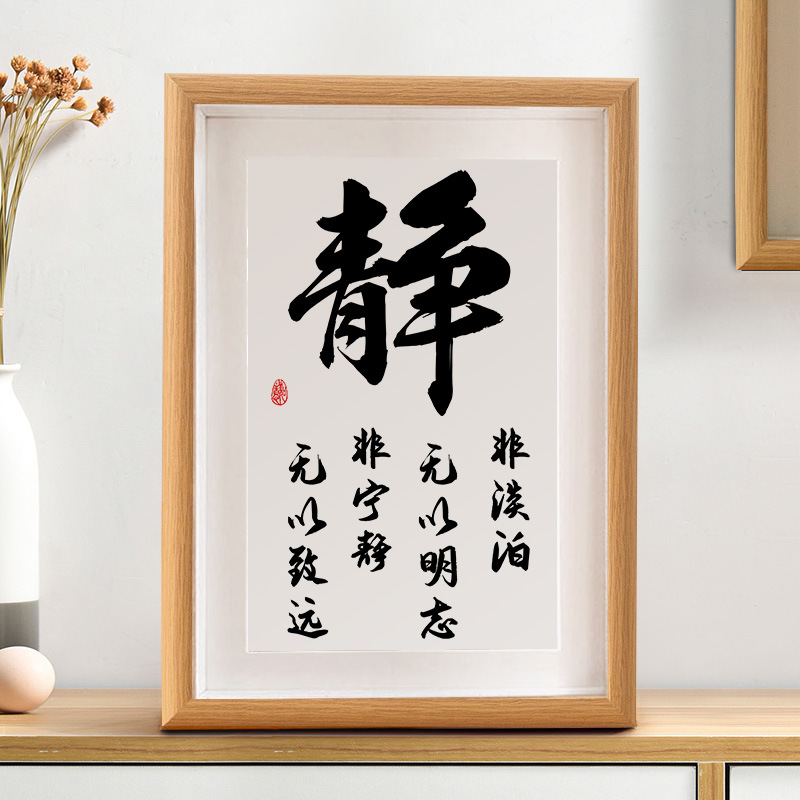 静
非淡泊
无以明志
非宁静
无以致远